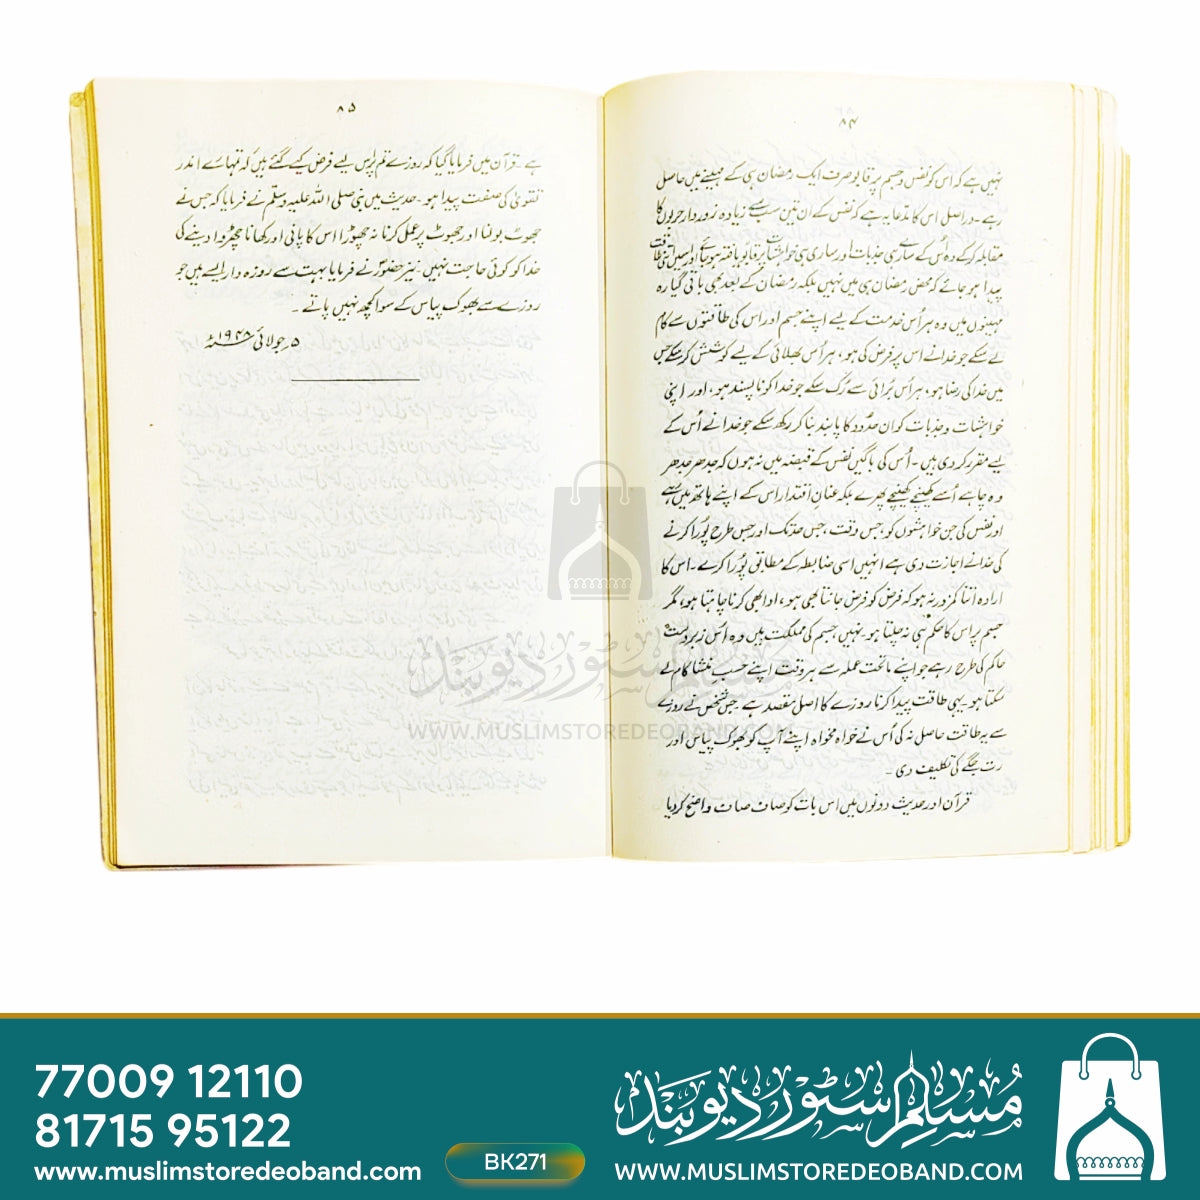 ۸۴
نہیں ہے کہ اس کو نفس و جسم پر قابو صرف ایک رمضان ہی کے مہینے میں حاصل
رہے ۔ دراصل اس کا مدعا یہ ہے کہ نفس کے ان تین سب سے زیادہ زوردار حربوں کا
مقابلہ کرکے وہ اس کے سارے ہی جذبات اور ساری ہی خواہشات پر قابو یافتہ ہو جائے اور اس میں اتنی طاقت
پیدا ہو جائے کہ محض رمضان ہی میں نہیں بلکہ رمضان کے بعد بھی باقی گیارہ
مہینوں میں وہ ہر اُس خدمت کے لیے اپنے جسم اور اس کی طاقتوں سے کام
لے سکے جو خدا نے اس پر فرض کی ہو ، ہر اُس بھلائی کے لیے کوشش کر سکے جس
میں خدا کی رضا ہو ، ہر اُس بُرائی سے رُک سکے جو خدا کو ناپسند ہو ، اور اپنی
خواہشات و جذبات کو ان حدُود کا پابند بنا کر رکھ سکے جو خدا نے اُس کے
لیے مقرر کر دی ہیں ۔ اُس کی باگیں نفس کے قبضہ میں نہ ہوں کہ جدھر جدھر
وہ چاہے اُسے کھینچے کھینچے پھرے بلکہ عنانِ اقتدار اس کے اپنے ہاتھ میں رہے
اور نفس کی جن خواہشوں کو ، جس وقت ، جس حد تک اور جس طرح پُورا کرنے
کی خدا نے اجازت دی ہے انہیں اسی ضابطہ کے مطابق پُورا کرے ۔ اس کا
ارادہ اتنا کمزور نہ ہو کہ فرض کو فرض جانتا بھی ہو ، ادا بھی کرنا چاہتا ہو ، مگر
جسم پر اس کا حکم ہی نہ چلتا ہو ۔ نہیں ، جسم کی مملکت میں وہ اس زبردست
حاکم کی طرح رہے جو اپنے ماتحت عملہ سے ہر وقت اپنے حسب منشا کام لے
سکتا ہو ۔ یہی طاقت پیدا کرنا روزے کا اصل مقصد ہے ۔ جس شخص نے روزے
سے یہ طاقت حاصل نہ کی اُس نے خواہ مخواہ اپنے آپ کو بھوک پیاس اور
رت جگے کی تکلیف دی ۔
قرآن اور حدیث دونوں میں اس بات کو صاف صاف واضح کر دیا
۸۵
ہے ۔ قرآن میں فرمایا گیا کہ روزے تم پر اس لیے فرض کیے گئے ہیں کہ تمہارے اندر
تقویٰ کی صفت پیدا ہو ۔ حدیث میں نبی صلی اللہ علیہ وسلم نے فرمایا کہ جس نے
جھوٹ بولنا اور جھوٹ پر عمل کرنا نہ چھوڑا اس کا پانی اور کھانا چھڑوا دینے کی
خدا کو کوئی حاجت نہیں ۔ نیز حضورؐ نے فرمایا بہت سے روزہ دار ایسے ہیں جو
روزے سے بھوک پیاس کے سوا کچھ نہیں پاتے ۔
۵ ر جولائی ۱۹۴۸ء
مسلم سٹور دیوبند
WWW.MUSLIMSTOREDEOBAND.COM
77009 12110
81715 95122
www.muslimstoredeoband.com
BK271
مسلم سٹور دیوبند
WWW.MUSLIMSTOREDEOBAND.COM